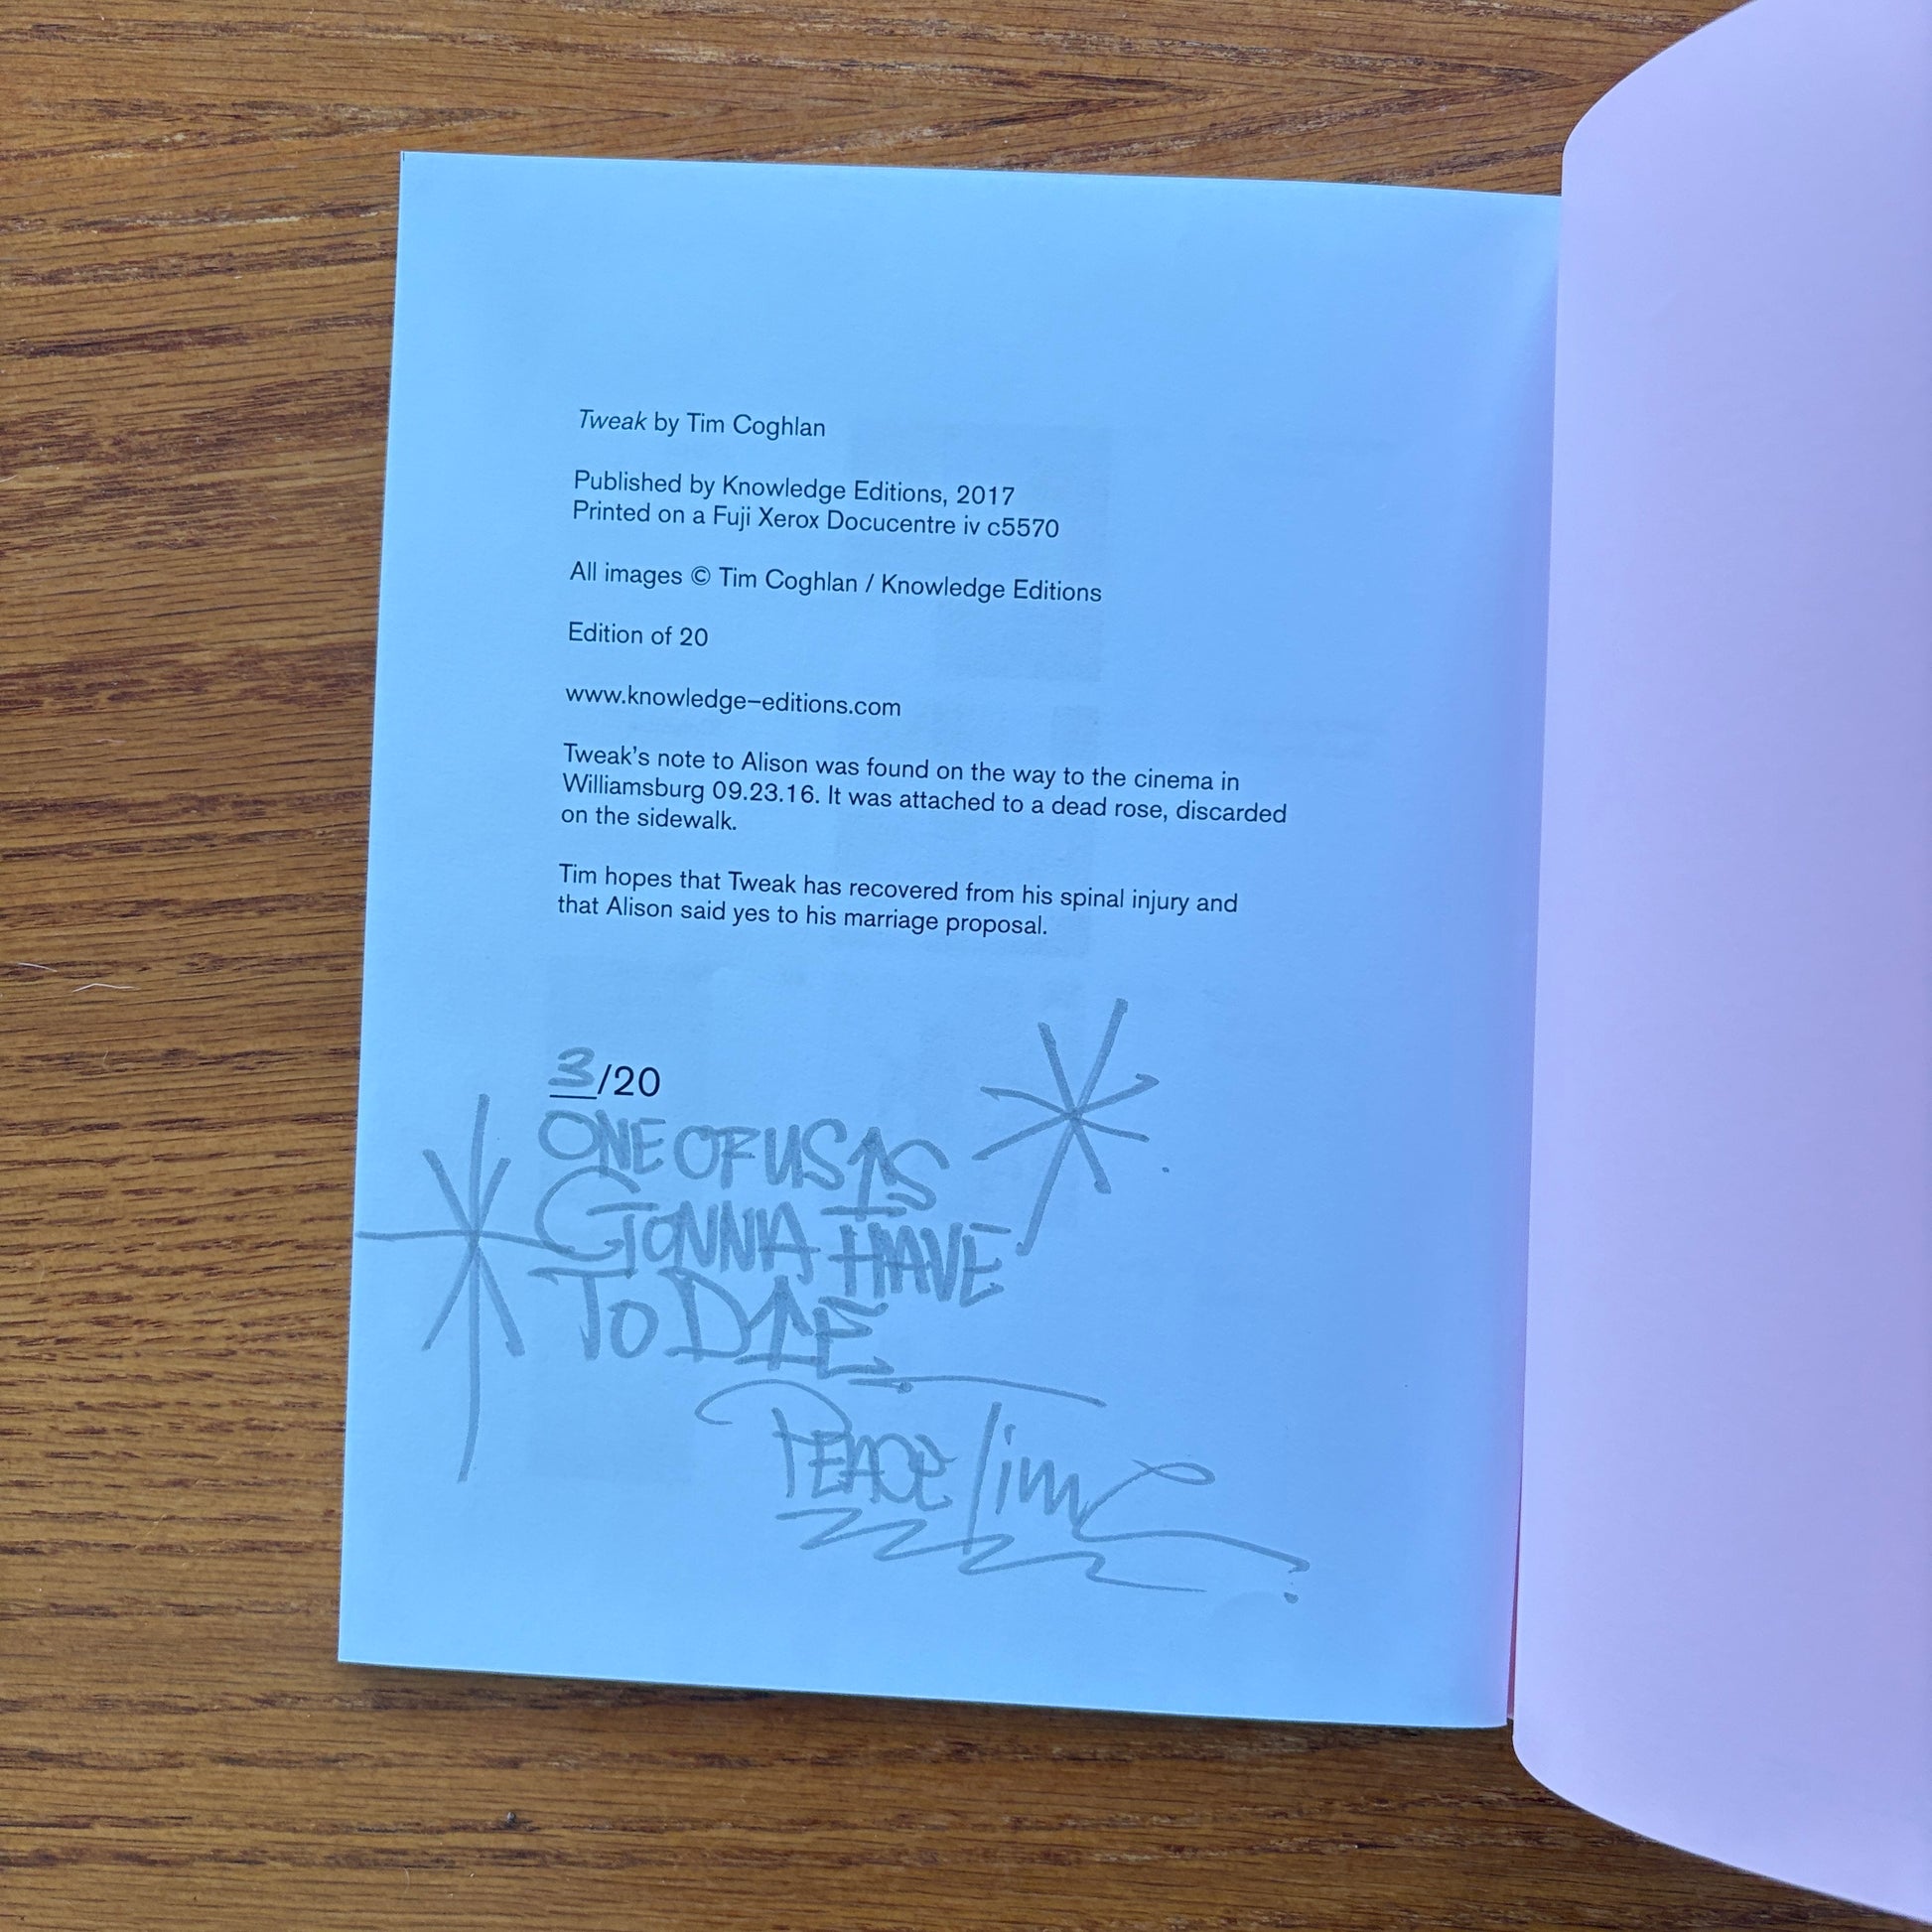 Tweak by Tim Coghlan
Published by Knowledge Editions, 2017
Printed on a Fuji Xerox Docucentre iv c5570
All images © Tim Coghlan / Knowledge Editions
Edition of 20
www.knowledge–editions.com
Tweak’s note to Alison was found on the way to the cinema in
Williamsburg 09.23.16. It was attached to a dead rose, discarded
on the sidewalk.
Tim hopes that Tweak has recovered from his spinal injury and
that Alison said yes to his marriage proposal.
3/20
ONE OF US IS
GONNA HAVE
TO DIE.
PEACE Tim